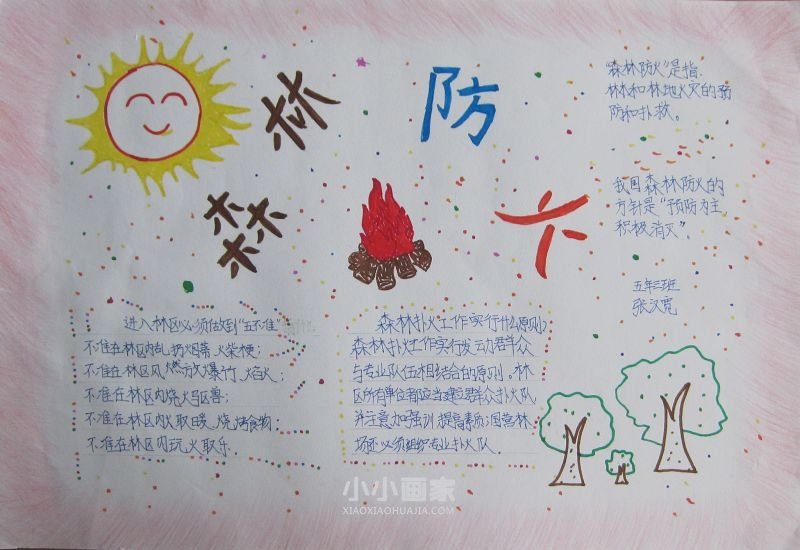 森
林
防
火
"森林防火"是指
林和林地火灾的预
防和扑救。
我国森林防火的
方针是"预防为主,
积极消灭"。
五年三班
张汉宽
进入林区必须做到"五不准"
不准在林区内乱扔烟蒂、火柴梗;
不准在林区风燃放爆竹、焰火;
不准在林区内烧火驱兽;
不准在林区内火取暖、烧烤食物;
不准在林区内玩火取乐.
森林扑火工作实行什么原则?
森林扑火工作实行发动群众
与专业队伍相结合的原则。林
区所有单位都应当建立群众扑火队
并注意加强训提高素质;国营林
场还必须组织专业扑火队.
小小画家
XIAOXIAOHUAJIA.COM